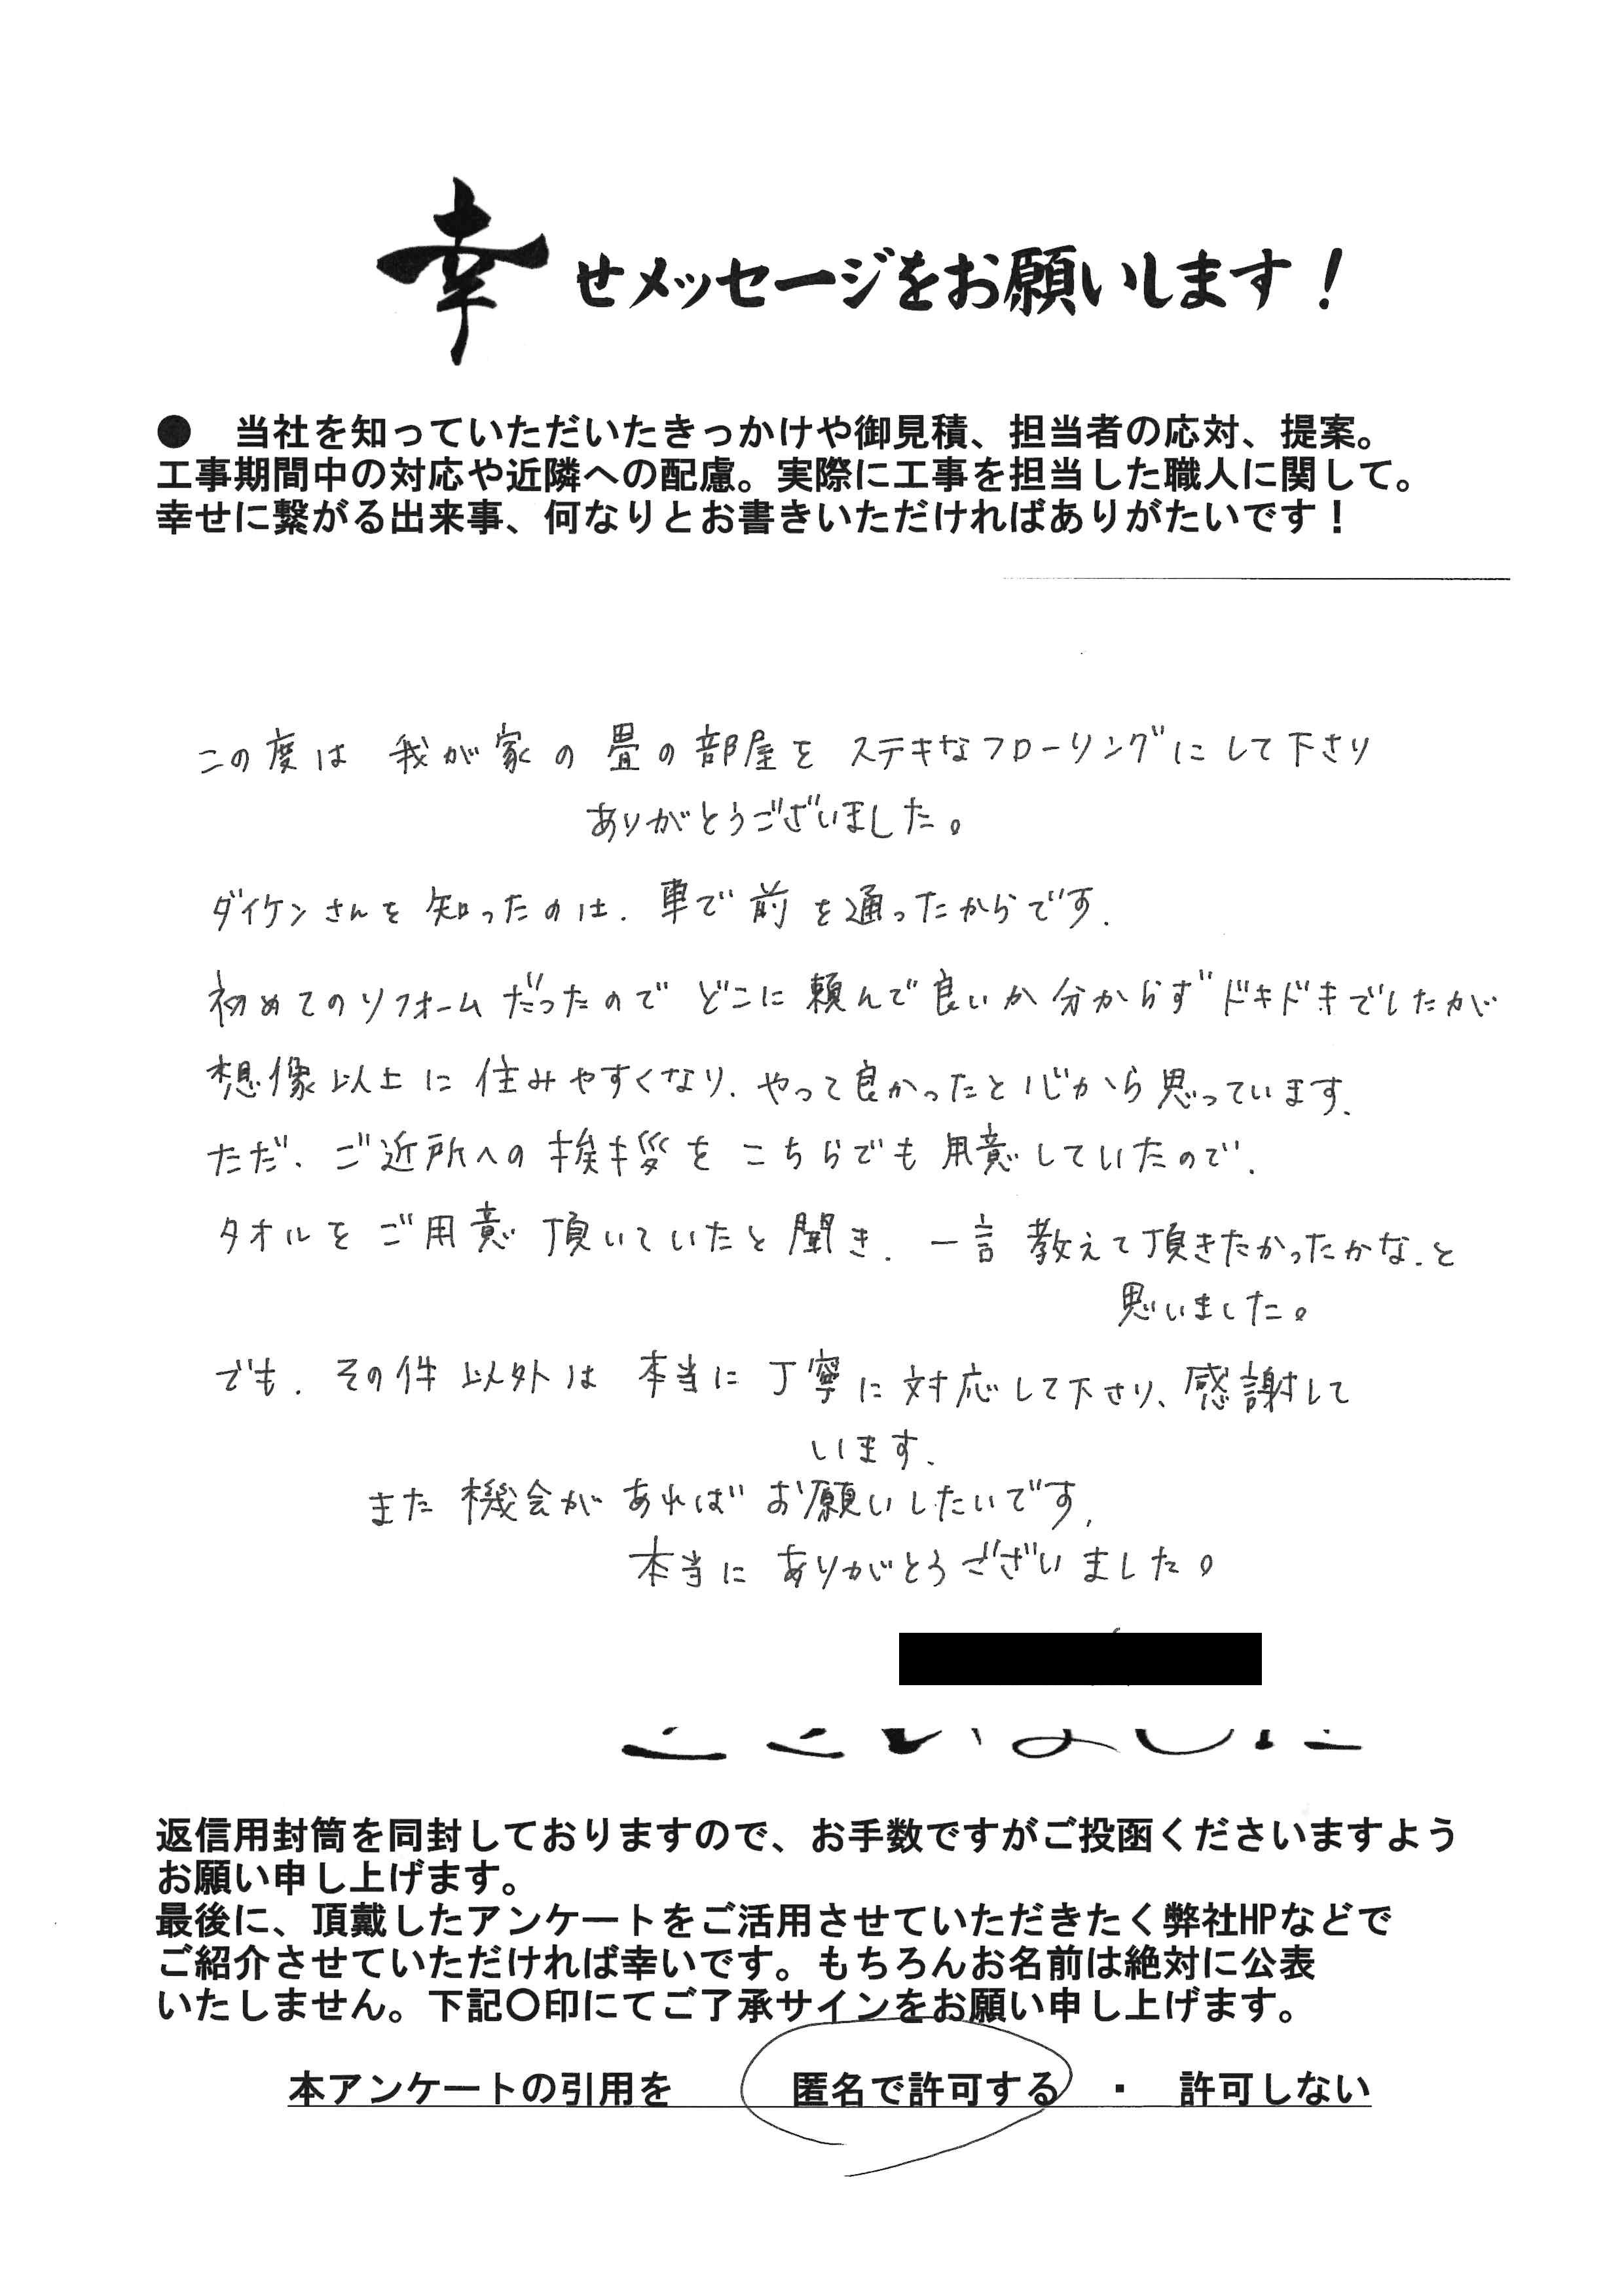 幸せメッセージをお願いします！
● 当社を知っていただいたきっかけや御見積、担当者の応対、提案。
工事期間中の対応や近隣への配慮。実際に工事を担当した職人に関して。
幸せに繋がる出来事、何なりとお書きいただければありがたいです！
この度は 我が家の畳の部屋を ステキなフローリングにして下さり
ありがとうございました。
ダイケンさんを知ったのは、車で前を通ったからです。
初めてのリフォームだったので どこに頼んで良いか分からず ドキドキでしたが
想像以上に住みやすくなり、やって良かったと心から思っています。
ただ、ご近所への挨拶をこちらでも用意していたので、
タオルをご用意頂いていたと聞き、一言教えて頂きたかったかな、と
思いました。
でも、その件以外は 本当に丁寧に対応して下さり、感謝して
います。
また機会があればお願いしたいです。
本当にありがとうございました。
返信用封筒を同封しておりますので、お手数ですがご投函くださいますよう
お願い申し上げます。
最後に、頂戴したアンケートをご活用させていただきたく弊社HPなどで
ご紹介させていただければ幸いです。もちろんお名前は絶対に公表
いたしません。下記〇印にてご了承サインをお願い申し上げます。
本アンケートの引用を 匿名で許可する ・ 許可しない